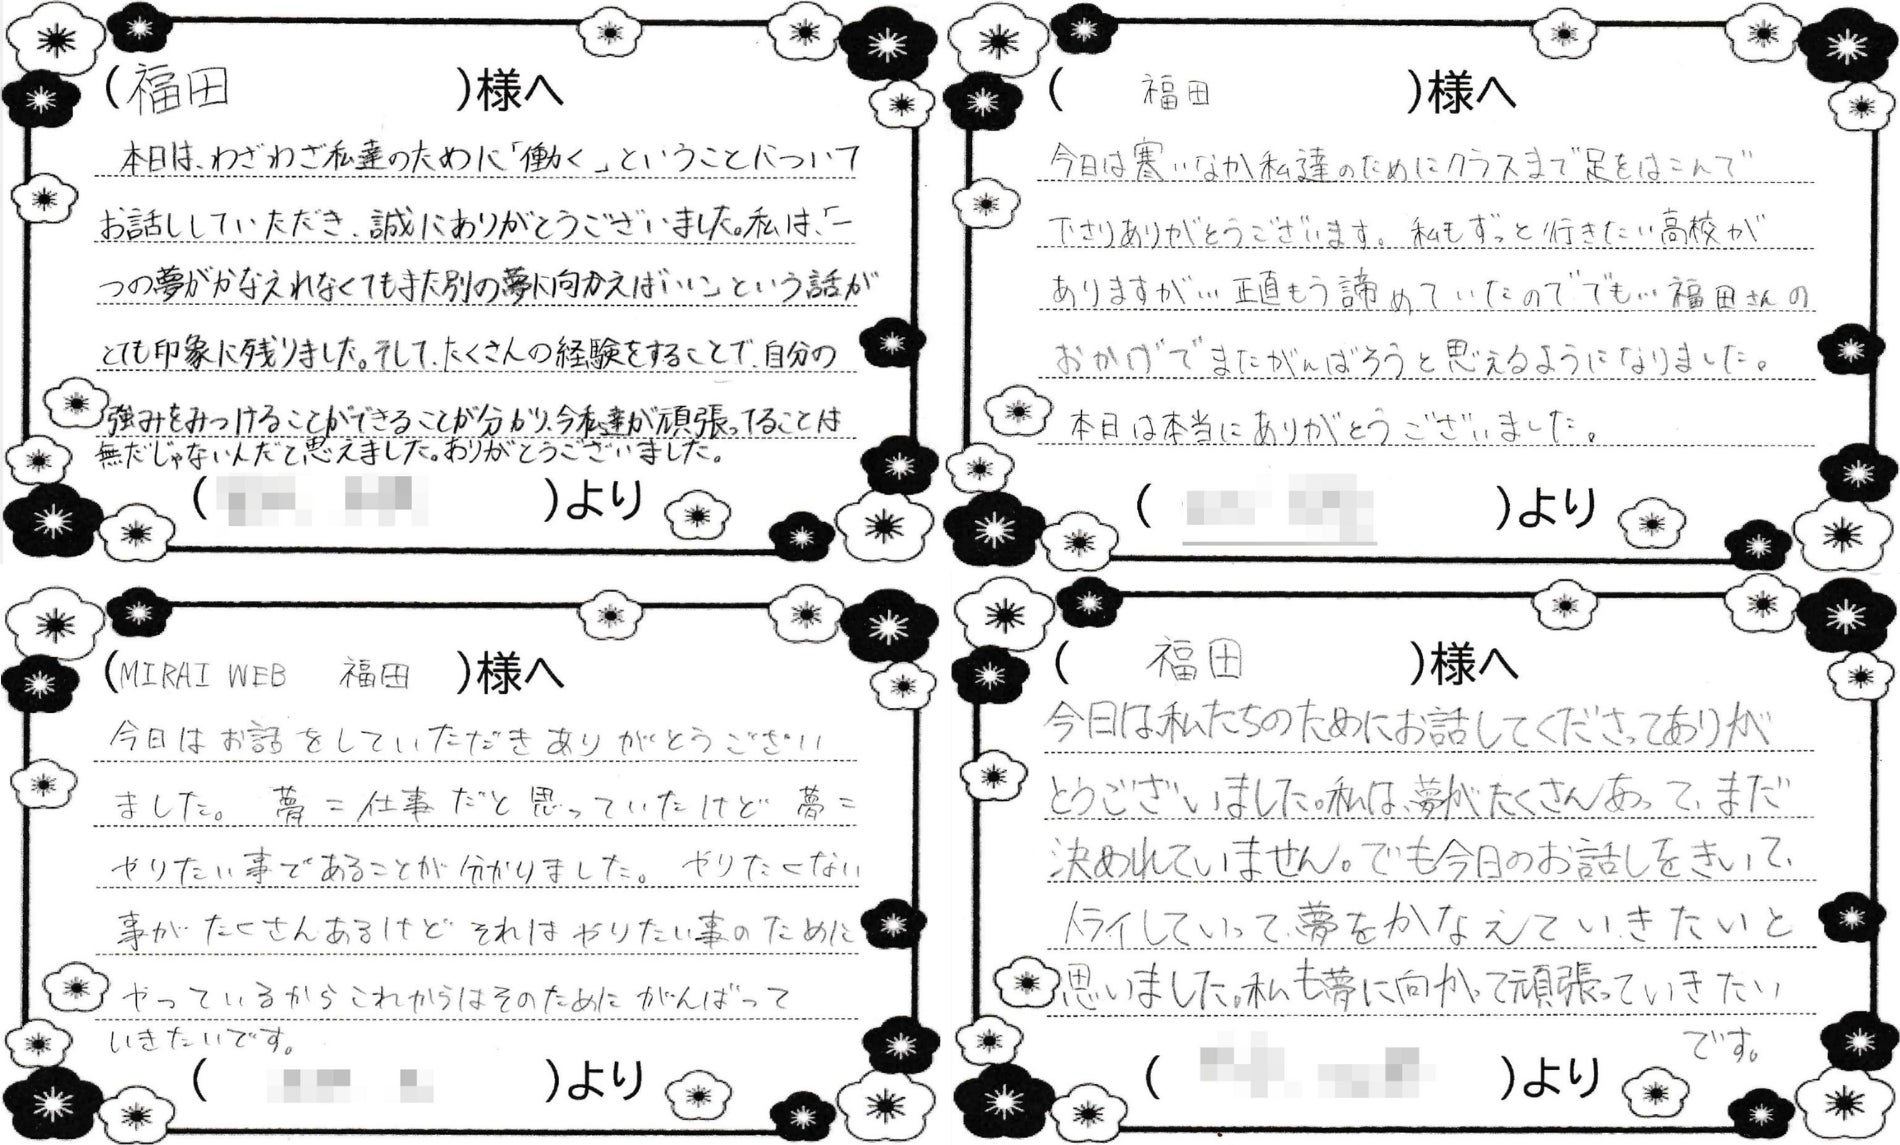 (福田)様へ
本日は、わざわざ私達のために「働く」ということについて
お話ししていただき、誠にありがとうございました。私は、「一
つの夢がかなえれなくてもまた別の夢に向かえばいい」という話が
とても印象に残りました。そして、たくさんの経験をすることで、自分の
強みをみつけることができることが分かり、今私達が頑張ってることは
無だじゃないんだと思えました。ありがとうございました。
( )より
(福田)様へ
今日は寒いなか私達のためにクラスまで足をはこんで
下さりありがとうございます。私もずっと行きたい高校が
ありますが…正直もう諦めていたのででも…福田さんの
おかげでまたがんばろうと思えるようになりました。
本日は本当にありがとうございました。
( )より
(MIRAI WEB 福田)様へ
今日はお話をしていただきありがとうござい
ました。 夢=仕事だと思っていたけど 夢=
やりたい事であることが分かりました。 やりたくない
事がたくさんあるけど それは やりたい事のために
やっているから これからはそのために がんばって
いきたいです。
( )より
(福田)様へ
今日は私たちのためにお話してくださってありが
とうございました。私は、夢がたくさんあって、まだ
決めれていません。でも今日のお話しをきいて、
トライしていって、夢をかなえていきたいと
思いました。私も夢に向かって頑張っていきたい
です。
( )より